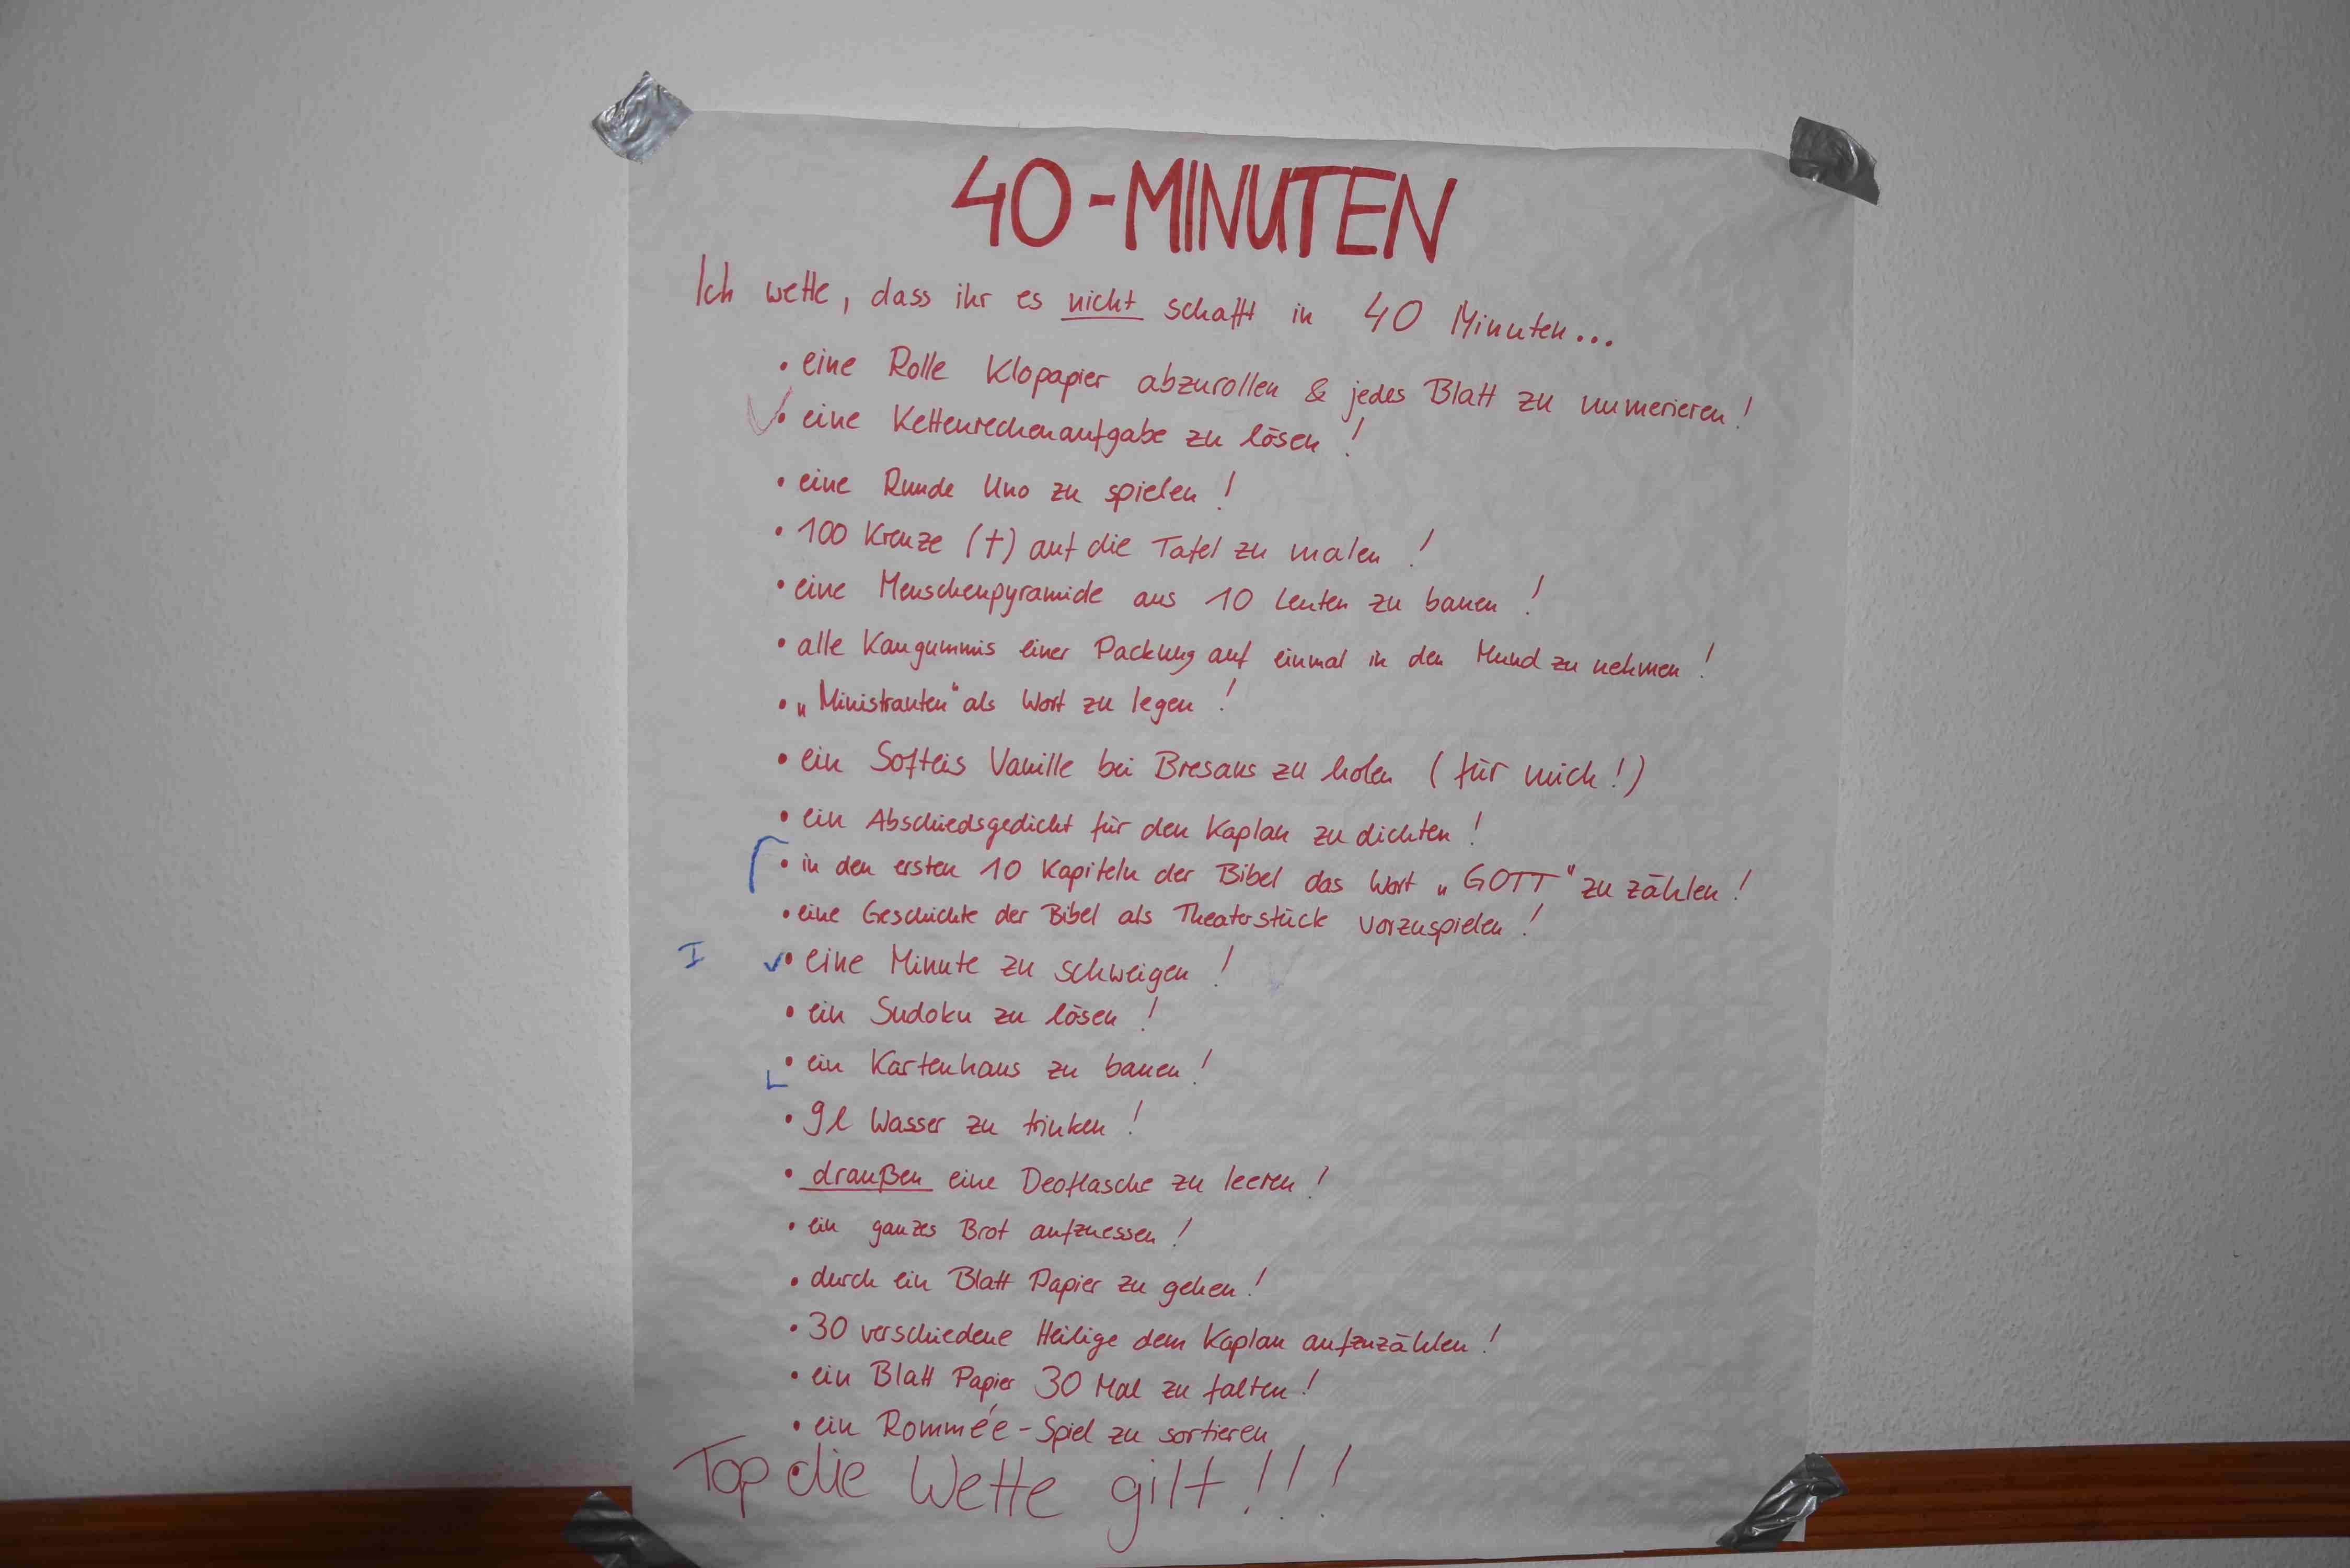 40-MINUTEN
Ich wette, dass ihr es nicht schafft in 40 Minuten...
• eine Rolle Klopapier abzurollen & jedes Blatt zu numerieren!
✓• eine Kettenrechenaufgabe zu lösen!
• eine Runde Uno zu spielen!
• 100 Kreuze (†) auf die Tafel zu malen!
• eine Menschenpyramide aus 10 Leuten zu bauen!
• alle Kaugummis einer Packung auf einmal in den Mund zu nehmen!
• „Ministranten" als Wort zu legen!
• ein Softeis Vanille bei Bresaus zu holen (für mich!)
• ein Abschiedsgedicht für den Kaplan zu dichten!
• in den ersten 10 Kapiteln der Bibel das Wort „GOTT" zu zählen!
• eine Geschichte der Bibel als Theaterstück vorzuspielen!
I ✓• eine Minute zu schweigen!
• ein Sudoku zu lösen!
• ein Kartenhaus zu bauen!
• 9l Wasser zu trinken!
• draußen eine Deoflasche zu leeren!
• ein ganzes Brot aufzuessen!
• durch ein Blatt Papier zu gehen!
• 30 verschiedene Heilige dem Kaplan aufzuzählen!
• ein Blatt Papier 30 Mal zu falten!
• ein Rommée-Spiel zu sortieren
Top die Wette gilt!!!